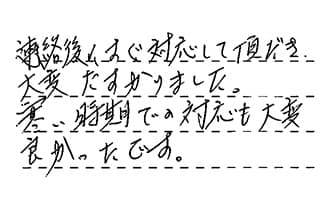 連絡後、すぐ対応して頂だき、
大変たすかりました。
寒い時期での対応も大変
良かったです。